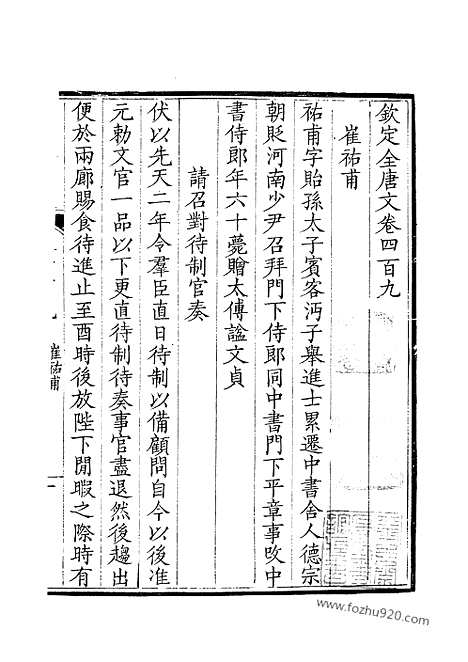 欽定全唐文卷四百九
崔祐甫
祐甫字貽孫太子賓客沔子舉進士累遷中書舍人德宗
朝貶河南少尹召拜門下侍郎同中書門下平章事改中
書侍郎年六十薨贈太傅謚文貞
請召對待制官奏
伏以先天二年令羣臣直日待制以備顧問自今以後准
元勅文官一品以下更直待制待奏事官盡退然後趨出
便於兩廊賜食待進止至酉時後放陛下閒暇之際時有
崔祐甫
一
www.fozhu920.com